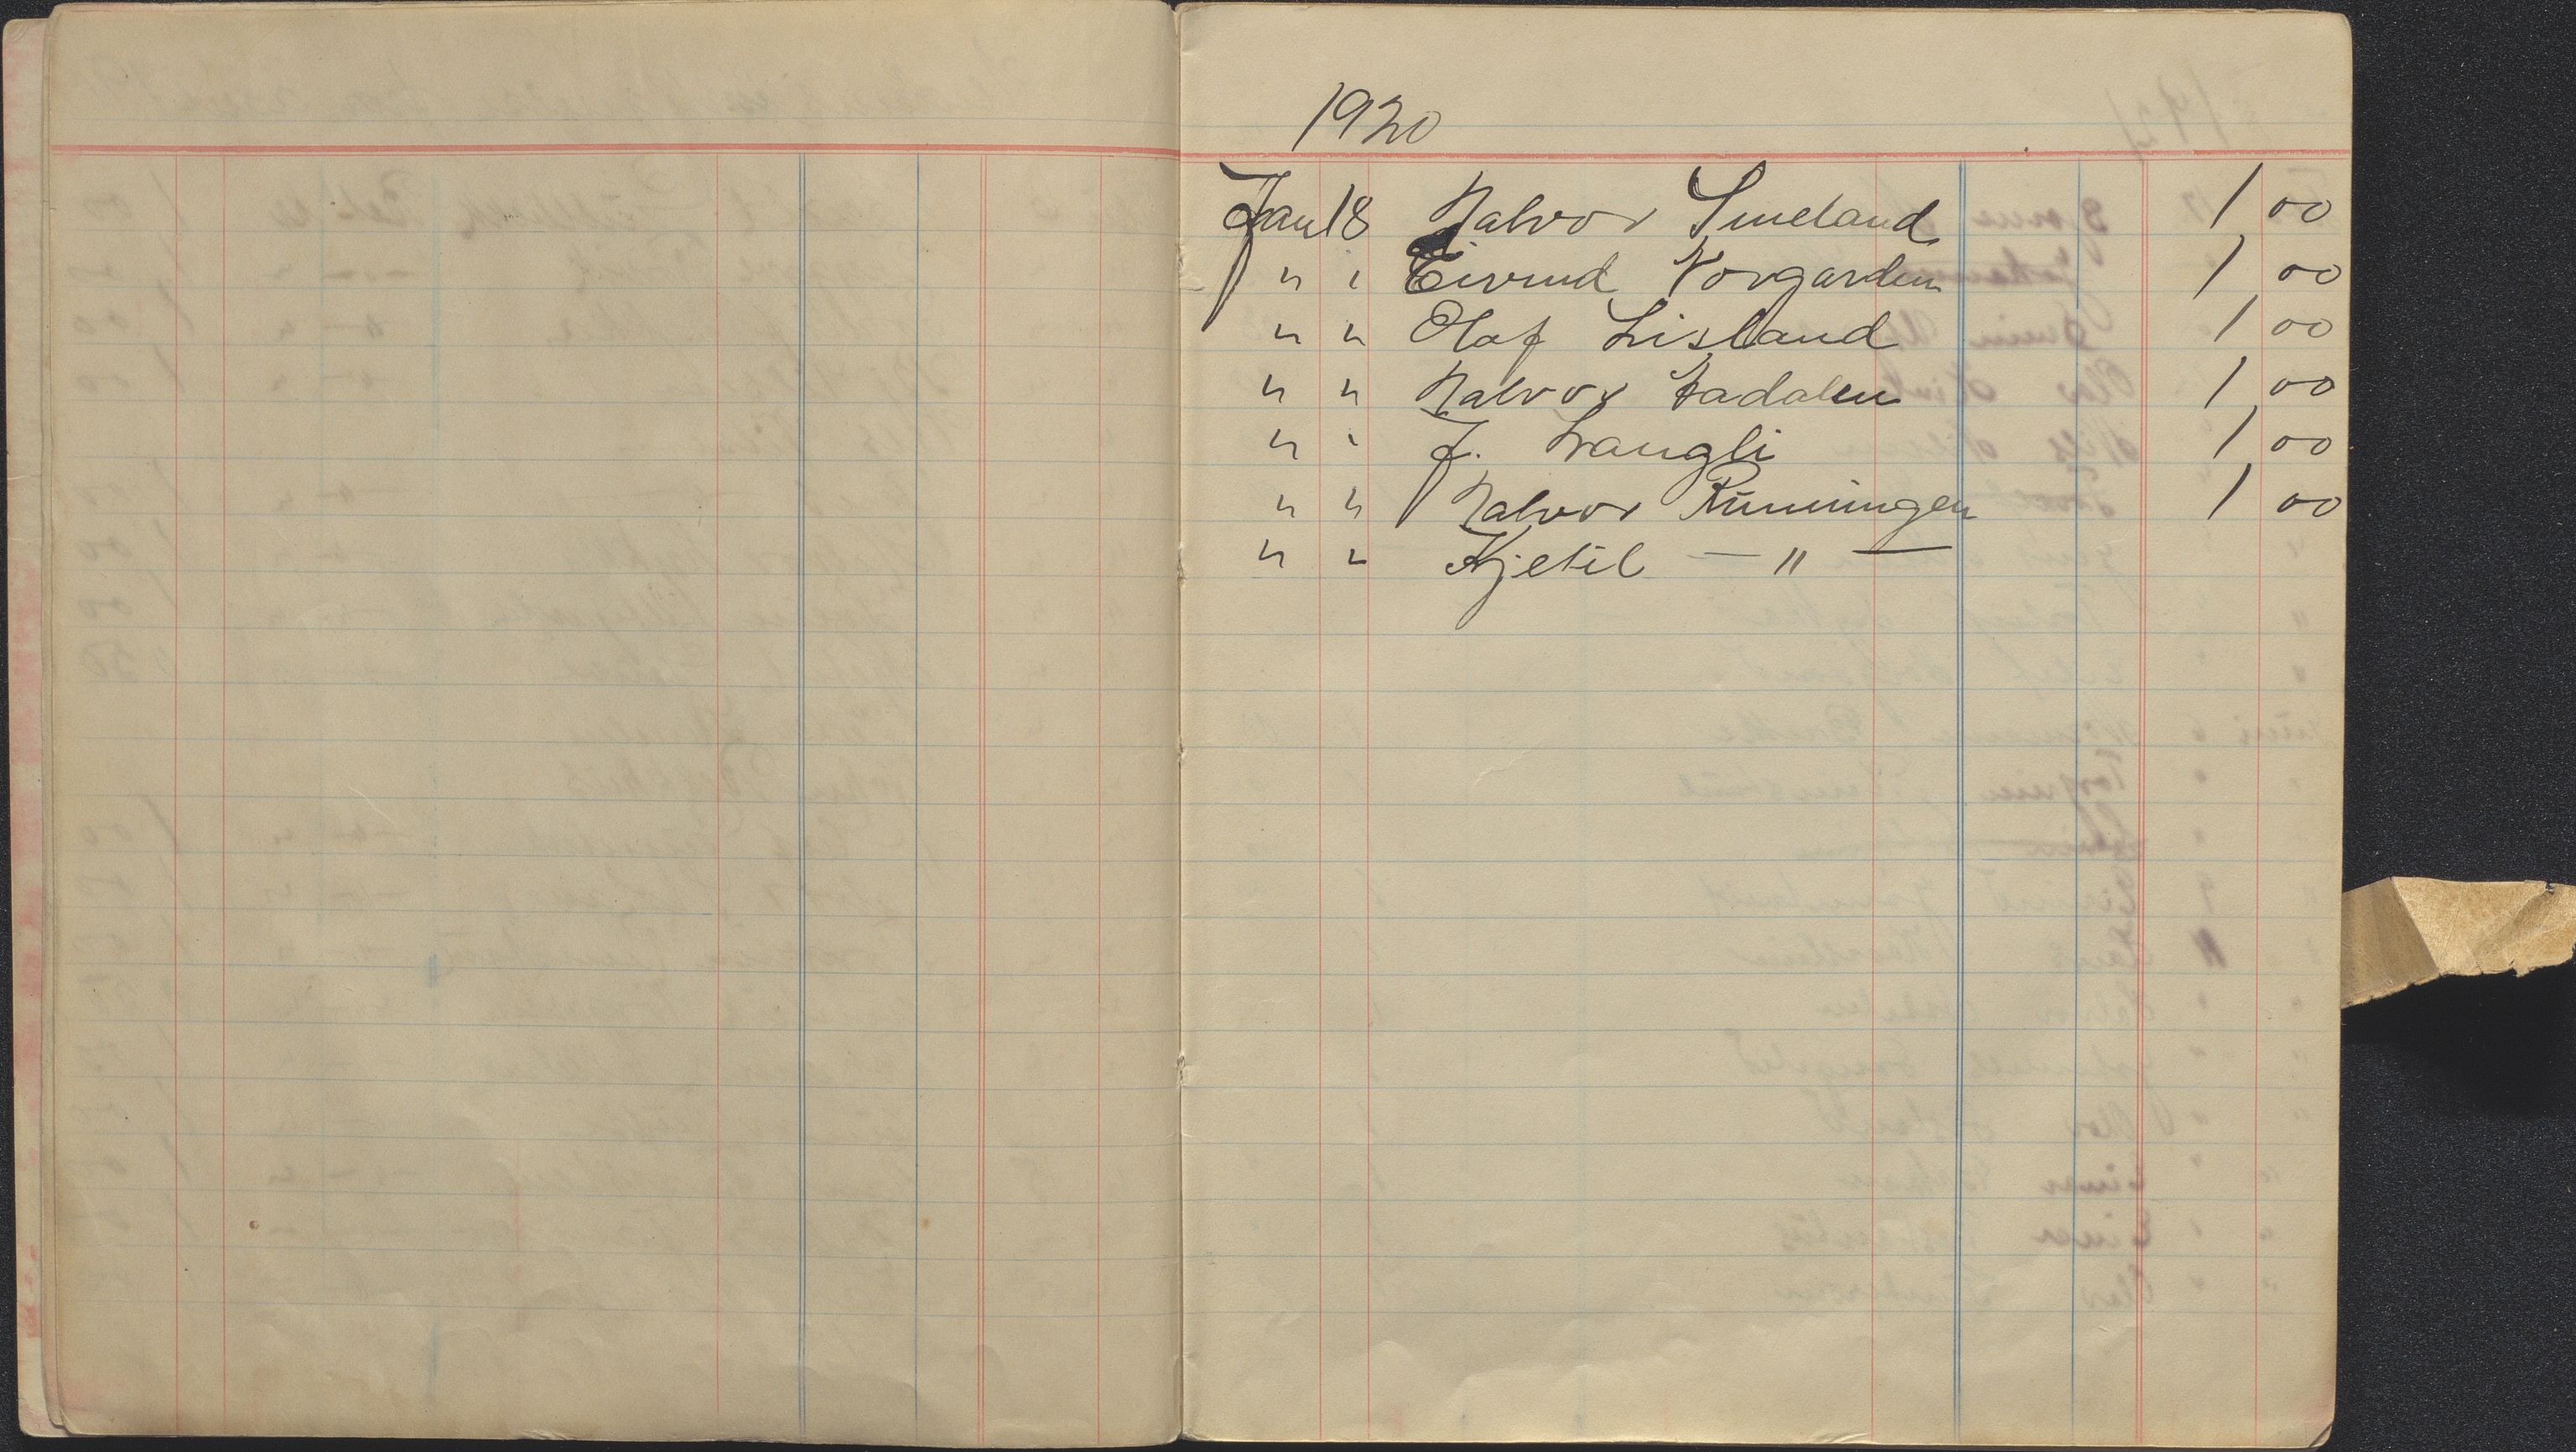 1920
Jan 18 Halvor Smeland 1 00
" " Eivind Norgarden 1 00
" " Olaf Lisland 1 00
" " Halvor Ladalen 1 00
" " J. Svangli 1 00
" " Halvor Rünningen 1 00
" " Kjetil — " —